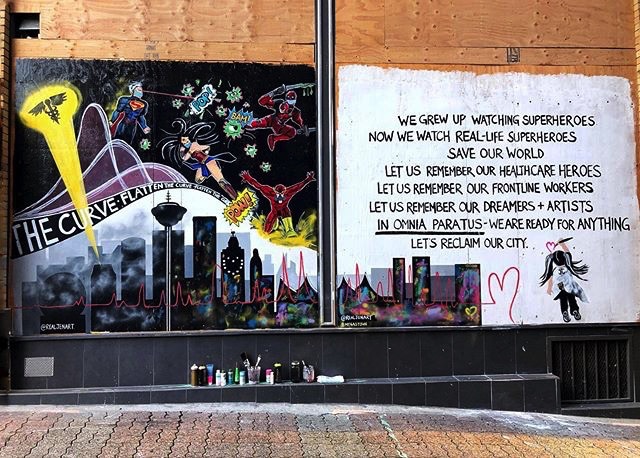 POP!
BAM!
POW!
THE CURVE·FLATTEN THE CURVE·FLATTEN THE
@REALJENART
WE GREW UP WATCHING SUPERHEROES
NOW WE WATCH REAL-LIFE SUPERHEROES
SAVE OUR WORLD
LET US REMEMBER OUR HEALTHCARE HEROES
LET US REMEMBER OUR FRONTLINE WORKERS
LET US REMEMBER OUR DREAMERS + ARTISTS
IN OMNIA PARATUS - WE ARE READY FOR ANYTHING
LET'S RECLAIM OUR CITY.
@REALJENART